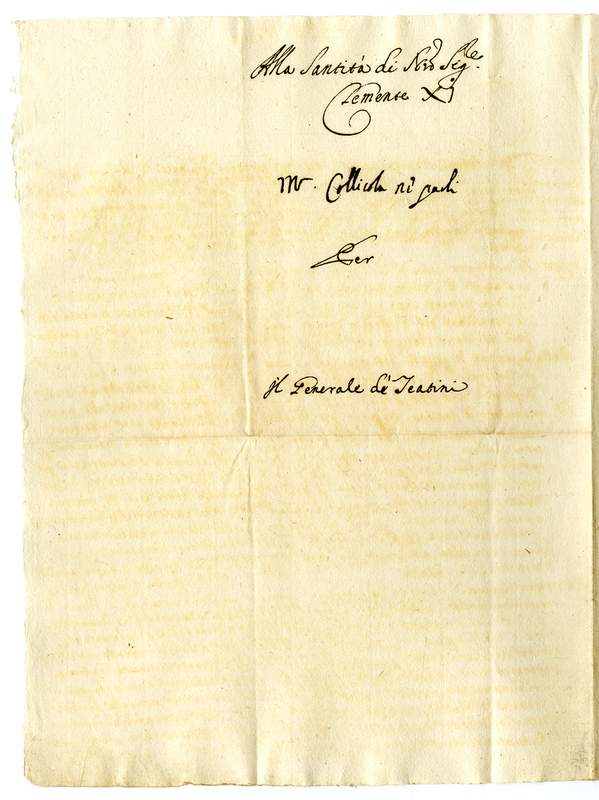 Alla Santità di Nrõ Sigre
Clemente XI
Mr. Collicola ne parli
Per
il Generale de' Teatini